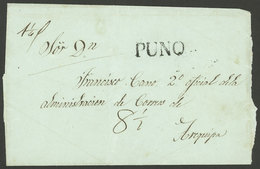 Sör Dn
PUNO
Francisco Cano 2º oficial dela
administracion de Correos de
8½
Arequipa